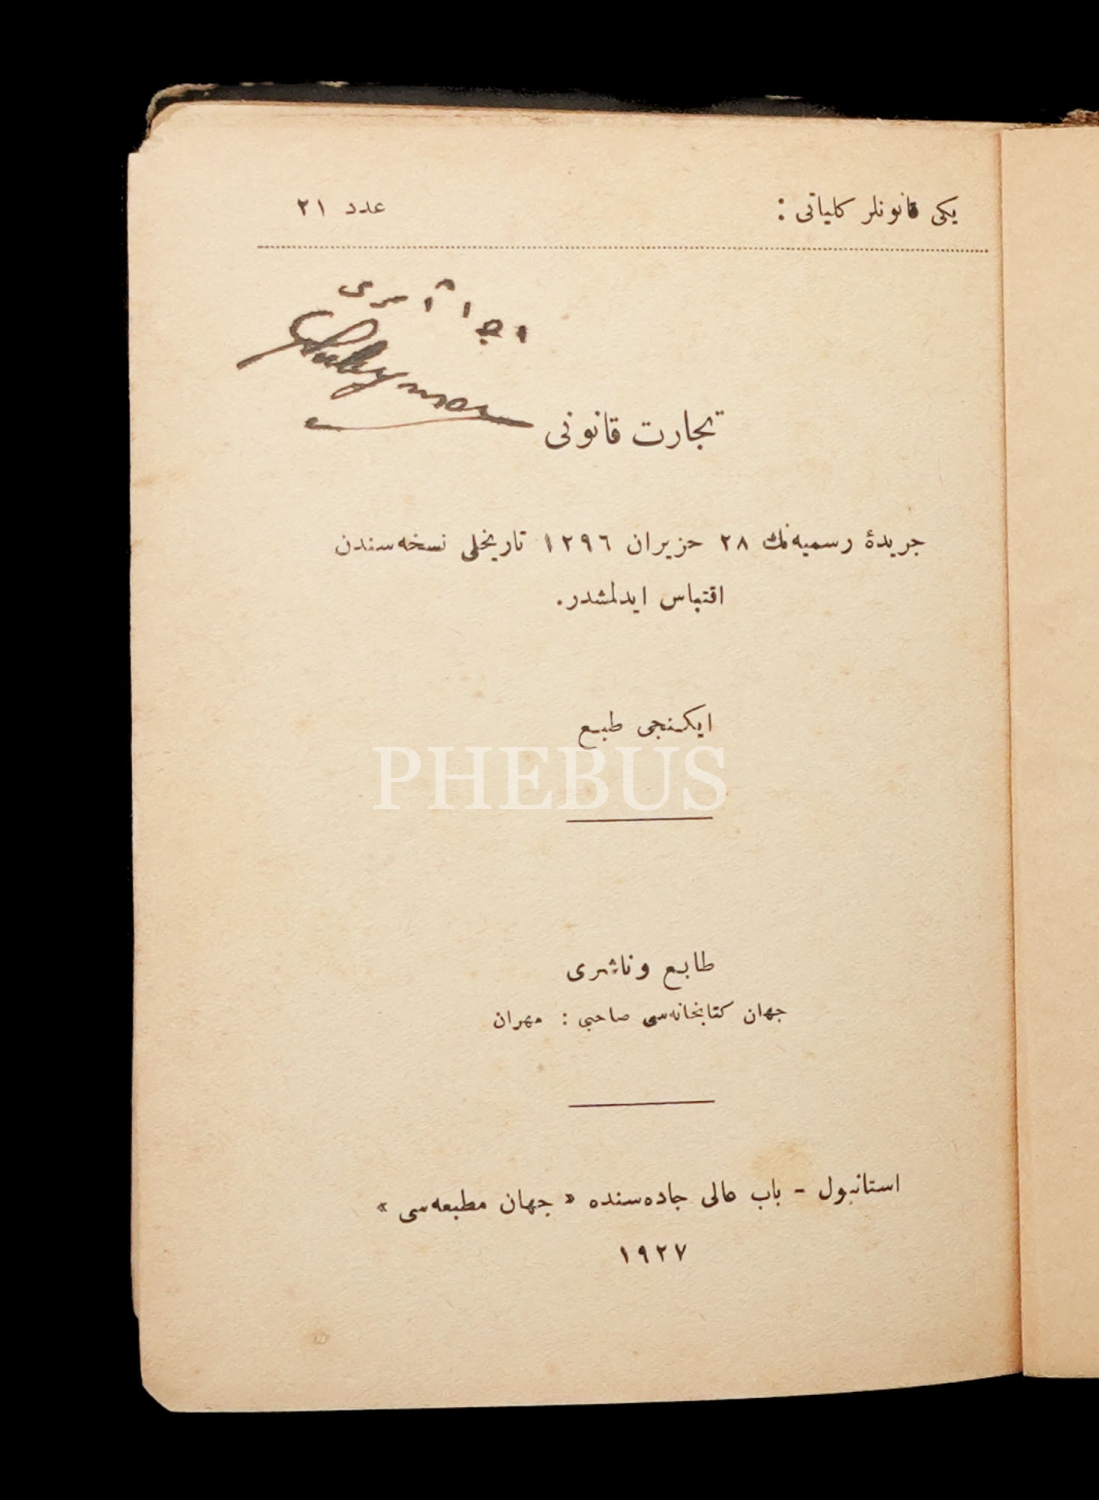 یکی قانونلر کلیاتی :
عدد ٢١
Suleyman
تجارت قانونی
جریدهٔ رسمیه‌نك ٢٨ حزیران ١٢٩٦ تاریخلی نسخه‌سندن
اقتباس ایدلمشدر.
ایکنجی طبع
PHEBUS
طابع وناشری
جهان کتابخانه‌سی صاحبی : مهران
استانبول - باب عالی جاده‌سنده « جهان مطبعه‌سی »
١٩٢٧